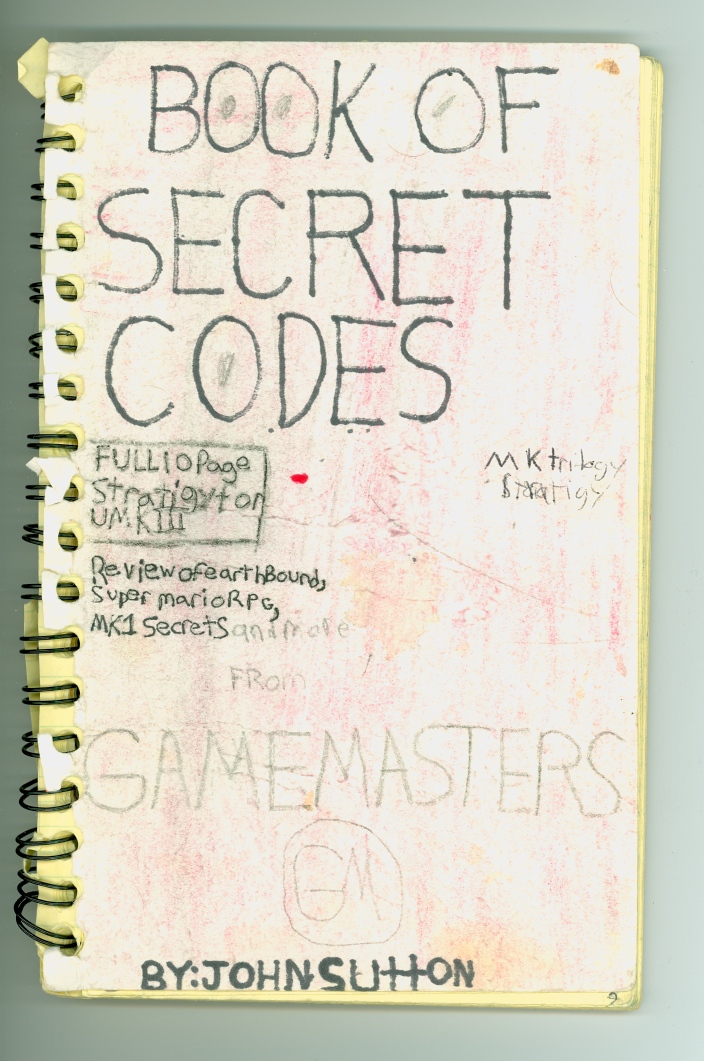 BOOK OF
SECRET
CODES
FULL 10 Page
Stratigy for
UMKIII
MK trilogy
Stratigy
Review of earthBound,
Super mario RPG,
MK1 Secrets and more
FRom
GAMEMASTERS
GM
BY: JOHN SUTTON